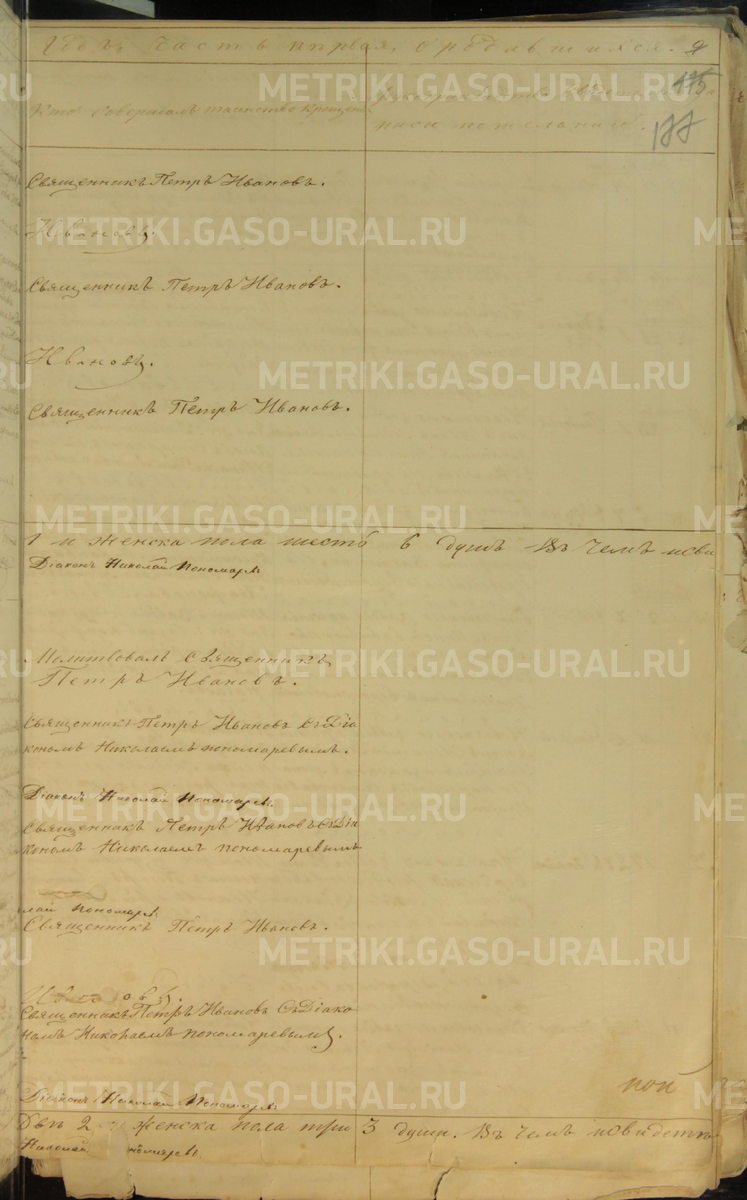 Годъ часть первая, о родившихся.
175
177
Кто совершалъ таинство крещенія
Рукоприкладство
писи по желанію.
Священникъ Петръ Ивановъ.
Ивановъ.
Священникъ Петръ Ивановъ.
Ивановъ.
Священникъ Петръ Ивановъ.
1 и женска пола шесть 6 душъ Въ чемъ исви
Діаконъ Николай Пономаревъ
Молитвовалъ священникъ
Петръ Ивановъ.
Священникъ Петръ Ивановъ съ Діа
кономъ Николаемъ пономаревымъ.
Діаконъ Николай Пономаревъ.
Священникъ Петръ Ивановъ съ Діа
кономъ Николаемъ пономаревымъ
лай Пономаревъ
Священникъ Петръ Ивановъ.
Священникъ Петръ Ивановъ съ Діако
номъ Николаемъ пономаревымъ.
Діаконъ Николай Пономаревъ
пои
Двѣ 2 и женска пола три 3 души. Въ чемъ исвидетел
Николай номаревъ.
METRIKI.GASO-URAL.RU
METRIKI.GASO-URAL.RU
METRIKI.GASO-URAL.RU
METRIKI.GASO-URAL.RU
METRIKI.GASO-URAL.RU
METRIKI.GASO-URAL.RU
METRIKI.GASO-URAL.RU
METRIKI.GASO-URAL.RU